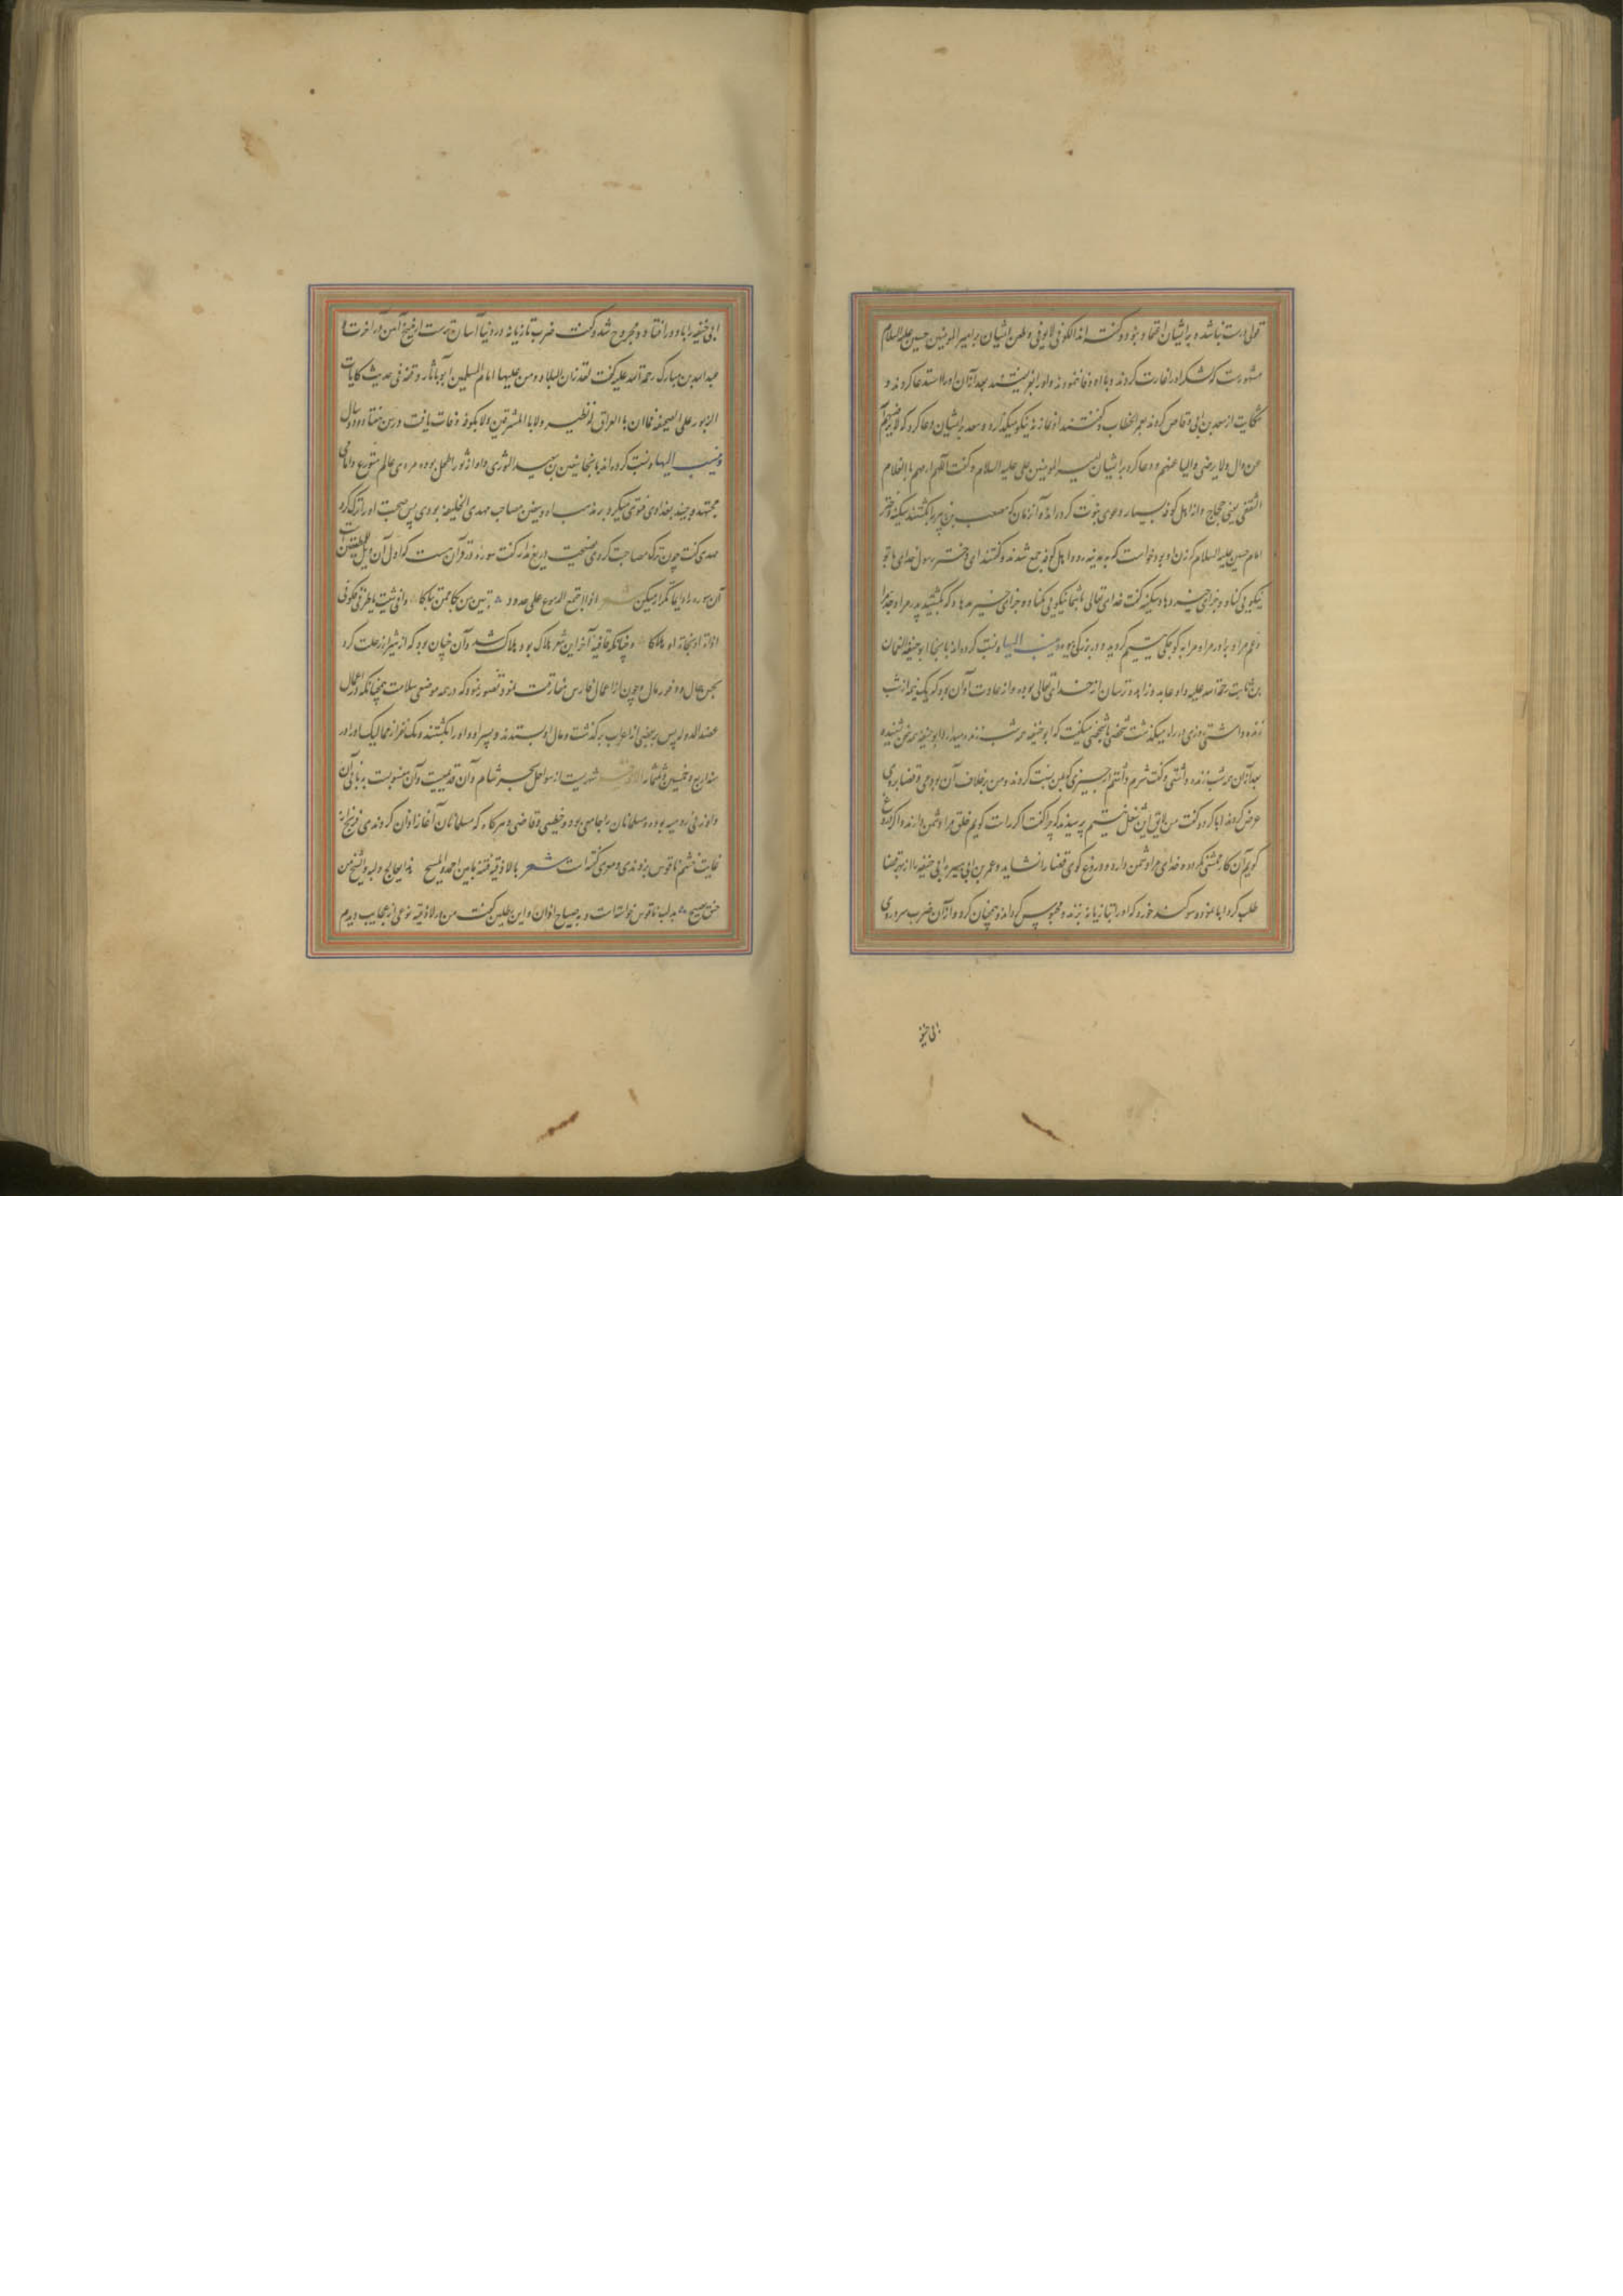 قولی درست نباشد و بر ایشان اعتماد و بنود و گفته‌اند الکوفی لا یوفی و طعن ایشان بر امیرالمومنین حسین علیه السلام
مشهورست که لشکر او را غارت کردند و با او وفا ننمودند و او را بفریفتند بعد از آن او را استدعا کردند و
شکایت از سعد بن ابی وقاص کردند بعمر الخطاب و گفتند او نماز نه نیکو میگذارد و سعد بر ایشان دعا کرد که لا یرضیهم
من وال ولا یرضی والیا عنهم و دعا کرد بر ایشان امیرالمومنین علی علیه السلام و گفت اللهم ارمهم بالغلام
الثقفی یعنی حجاج و از اهل کوفه بسیار دعوی نبوت کرده‌اند و آن زمان که مصعب بن زبیر را بکشتند سکینه دختر
امام حسین علیه السلام که زن او بود خواست که بمدینه رود اهل کوفه جمع شدند و گفتند ای دختر رسول خدای با تو
نیکویی کناد و جزای خیر دهاد سکینه گفت خدای تعالی با شما نیکویی مکناد و جزای خیر مدهاد که بکشتید پدر مرا و جد مرا
و عم مرا و برادر مرا و مرا به کوچکی یتیم کردید و در بزرگی بیوه و ینسب الیها و نسبت کرده‌اند بانجا ابوحنیفه النعمان
بن ثابت رحمة الله علیه و او عابد و زاهد و ترسان از خدای تعالی بوده و از عادت او آن بود که یک نیمه از شب
زنده داشتی روزی در راه میگذشت شخصی با شخصی میگفت که ابوحنیفه همه شب زنده میدارد ابوحنیفه سخن شنیده
بعد از آن همه شب زنده داشتی و گفت شرم داشتم از چیزی که بمن نسبت کردند و من بر خلاف آن بودمی و قضا بروی
عرض کردند ابا کرد و گفت من لایق این شغل نیستم پرسیدند که چرا گفت اگر راست گویم خلق مرا دشمن دارند و اگر دروغ
گویم آن کار متمشی نگردد و خدای مرا دشمن دارد و دروغ گوی قضا را نشاید و عمر بن ابی هبیره ابی حنیفه را از بهر قضا
طلب کرد ابا نمود سوگند خورد که او را تازیانه بزند و محبوس گرداند و همچنان کرد و از آن ضرب سر و روی
ابی حنیفه
ابی حنیفه را باد درافتاد و مجروح شد و گفت ضرب تازیانه در دنیا آسان ترست از مقامع آهن در آخرت و
عبدالله بن مبارک رحمة الله علیه گفت لقد زان البلاد ومن علیها امام المسلمین ابو بآثار و فقه فی حدیث کآیات
الزبور علی الصحیفه فما ان بالعراق له نظیر ولا بالمشرقین ولا بکوفه وفات یافت در سن هفتاد و دو سال
و ینسب الیها و نسبت کرده‌اند بانجا سفین بن سعید الثوری و او از ثور اطحل بوده مردی عالم متورع و امامی
مجتهد و جنید بغدادی فتوی میکرد بر مذهب او و سفین مصاحب مهدی الخلیفه بودی پس صحبت او را ترک کرد
مهدی گفت چون ترک مصاحبت کردی نصیحت دریغ مدار گفت سوره در قرآن هست که اول آن ویل للمطففین است
آن سوره را دایما تکرار میکن شعر اذا اجتمع الدموع علی خدود تبین من بکا ممن تباکا و انی شئت یا طرقی فکونی
اذاة او نجاة او هلاکا و چنانکه قافیه آخر این شعر هلاک بود و هلاک شد و آن چنان بود که از شیراز رحلت کرد
بحسن حال و وفور مال و چون از اعمال فارس مفارقت نمود تصور نمود که در همه موضعی سلامت همچنانکه در اعمال
عضدالدوله پس بعضی از اعراب برگذشت و مال او بستدند و پسر او و او را بکشتند و یک نفر از ممالیک او در
سنه اربع و خمسین و ثلثمائه اللاذقیه شهریست از سواحل بحر شام و آن قدیمیست و آن منسوبست بر بانی آن
و او زنی رومیه بوده و مسلمانان را جامعی بود و خطیبی و قاضی و هرگاه که مسلمانان آغاز اذان کردندی فرنج از
غایت خشم ناقوس بزدندی و معری گفته است شعر باللاذقیة فتنة ما بین احمد والمسیح هذا یعالج دلبة والشیخ من
حنق یصیح بدلبه ناقوس خواسته است و به صیاح اذان و ابن بطلان گفت من در لاذقیه نوعی از عجایب دیدم